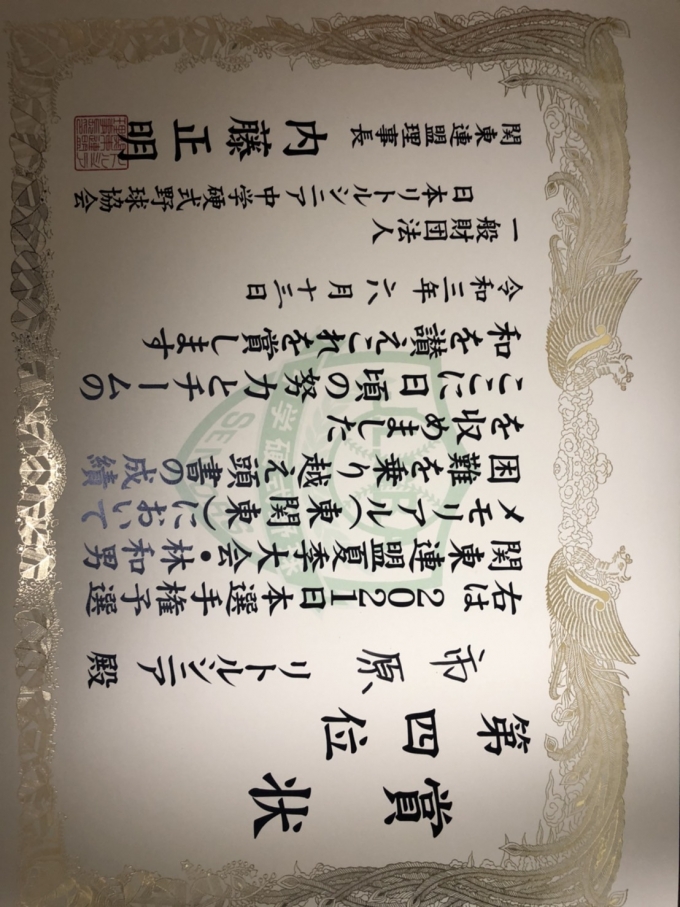 賞状
第四位
市原 リトルシニア 殿
右は2021日本選手権予選
関東連盟夏季大会・林和男
メモリアル(東関東)において
困難を乗り越え頭書の成績
を収めました
ここに日頃の努力とチームの
和を讃えこれを賞します
令和三年六月十三日
一般財団法人
日本リトルシニア中学硬式野球協会
関東連盟理事長 内藤正明